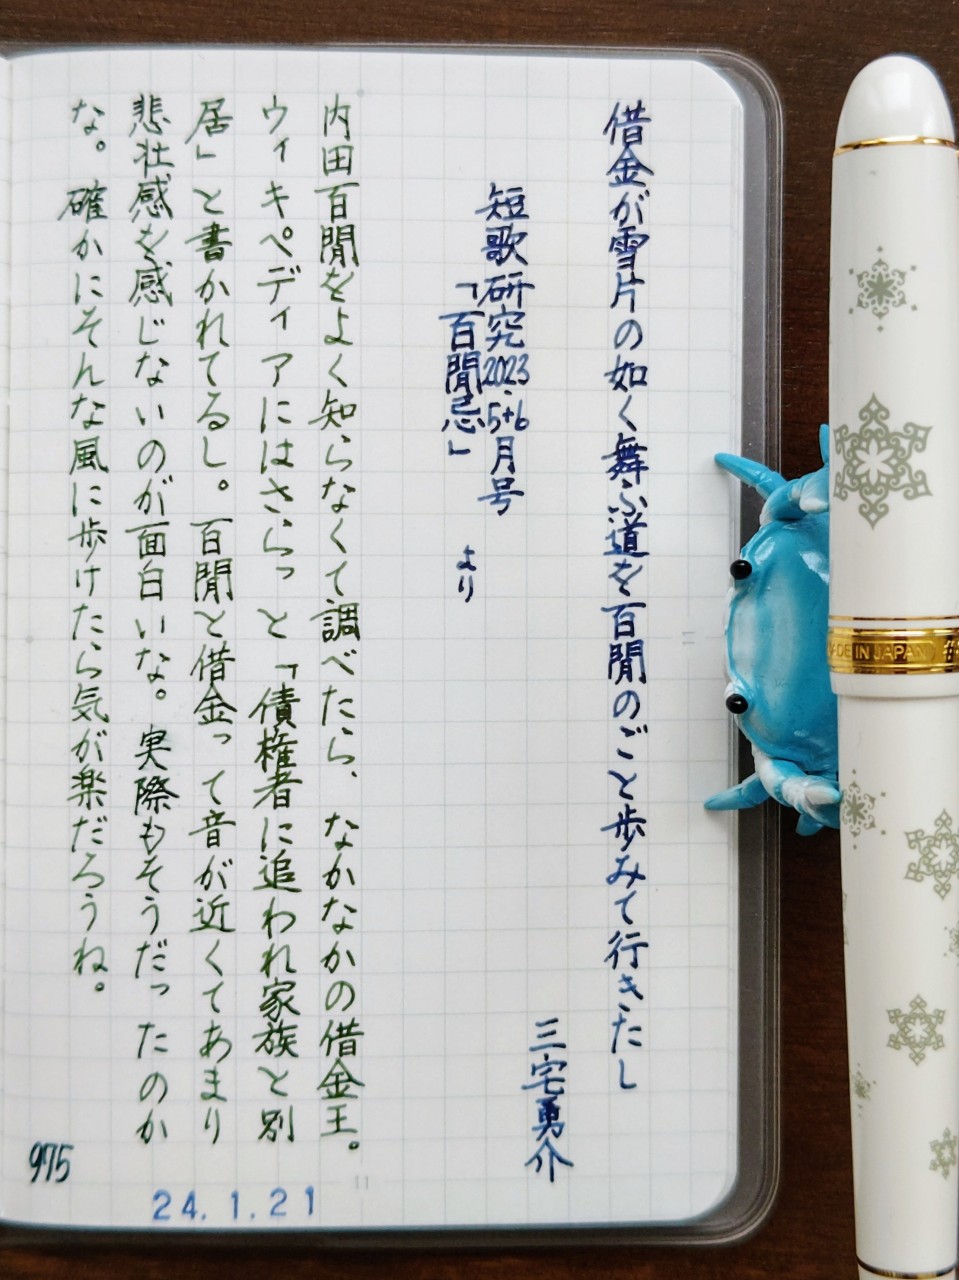 借金が雪片の如く舞ふ道を百閒のごと歩みて行きたし
三宅勇介
短歌研究2023.5+6月号
「百閒忌」より
内田百閒をよく知らなくて調べたら、なかなかの借金王。
ウィキペディアにはさらっと「債権者に追われ家族と別
居」と書かれてるし。百閒と借金って音が近くてあまり
悲壮感を感じないのが面白いな。実際もそうだったのか
な。確かにそんな風に歩けたら気が楽だろうね。
975
24.1.21
DE IN JAPAN